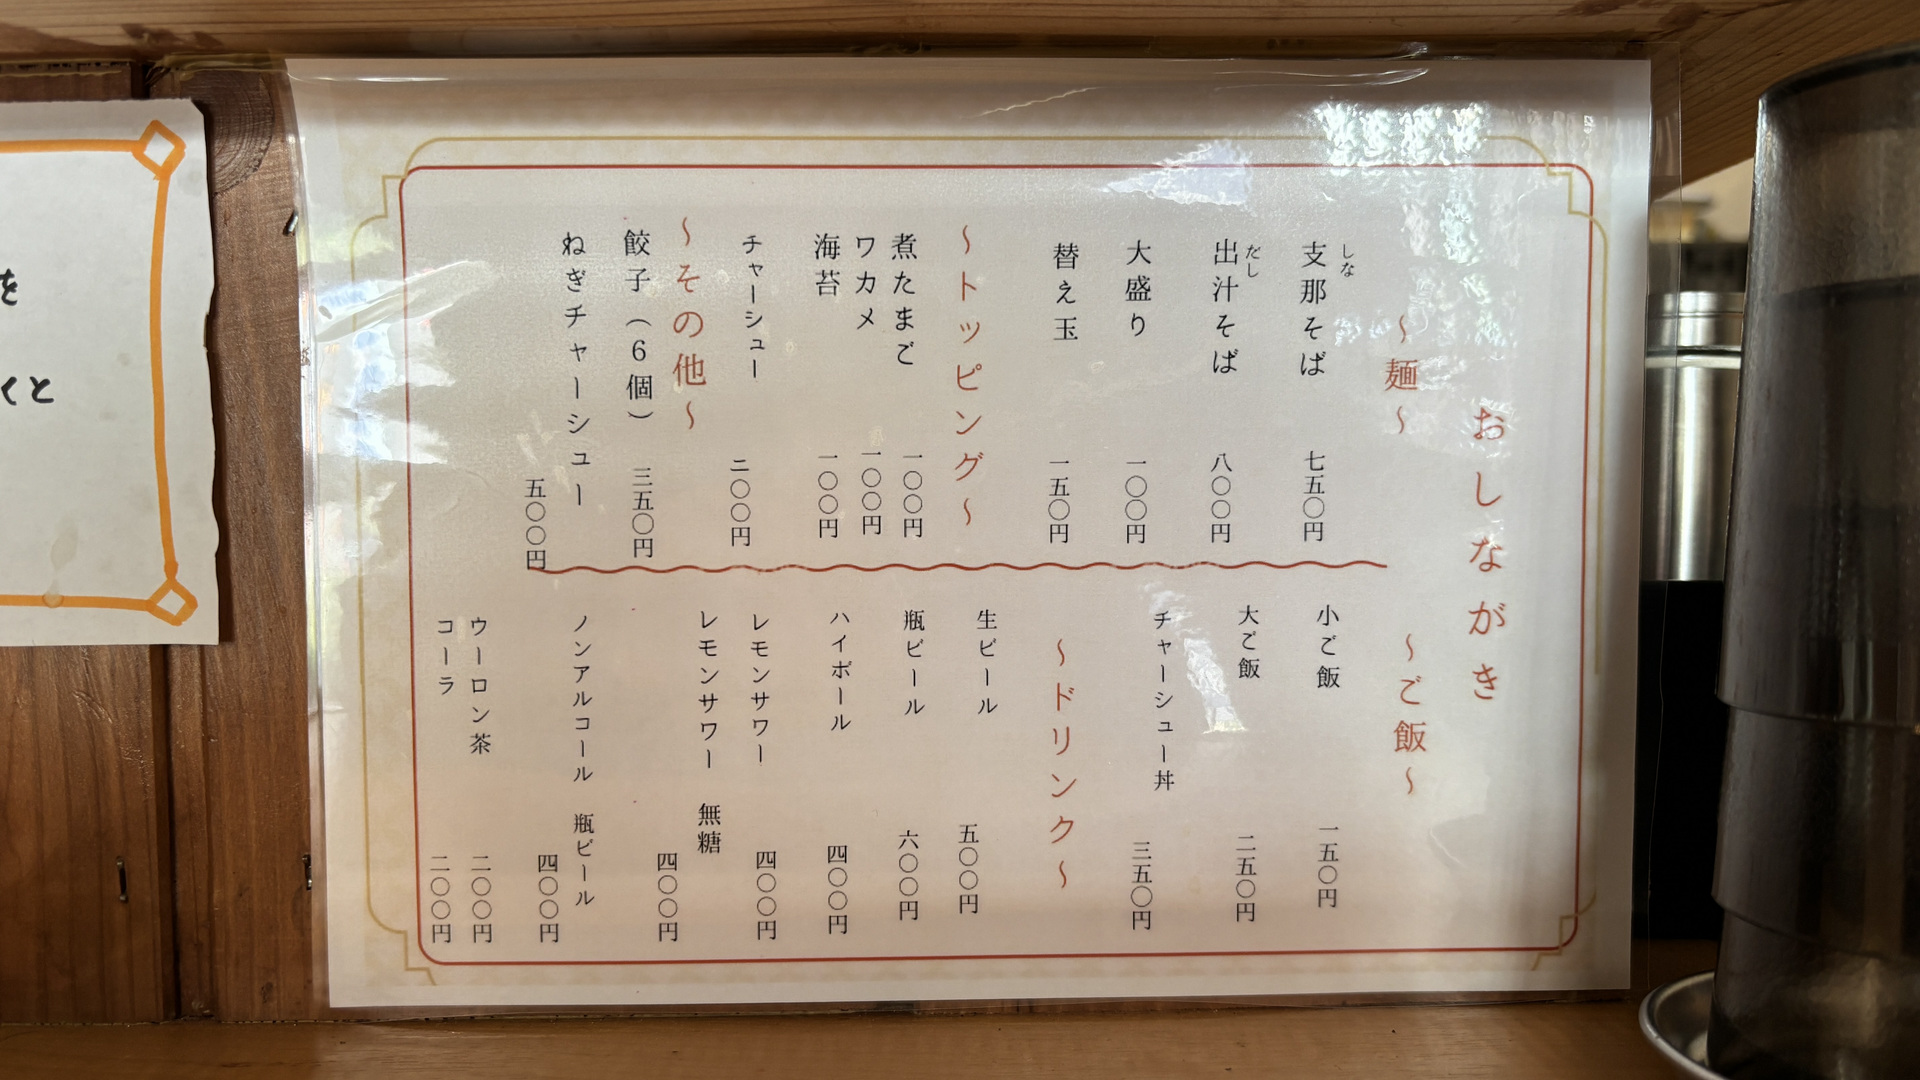 おしながき
〜麺〜
支那そば 七五〇円
しな
出汁そば 八〇〇円
だし
大盛り 一〇〇円
替え玉 一五〇円
〜トッピング〜
煮たまご 一〇〇円
ワカメ 一〇〇円
海苔 一〇〇円
チャーシュー 二〇〇円
〜その他〜
餃子(6個) 三五〇円
ねぎチャーシュー 五〇〇円
〜ご飯〜
小ご飯 一五〇円
大ご飯 二五〇円
チャーシュー丼 三五〇円
〜ドリンク〜
生ビール 五〇〇円
瓶ビール 六〇〇円
ハイボール 四〇〇円
レモンサワー 四〇〇円
レモンサワー 無糖 四〇〇円
ノンアルコール 瓶ビール 四〇〇円
ウーロン茶 二〇〇円
コーラ 二〇〇円
を
くと